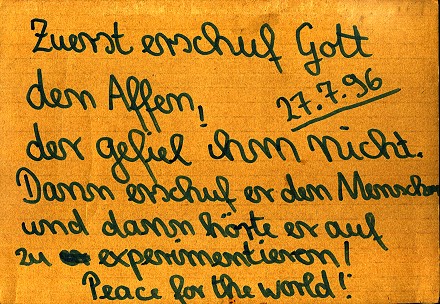 Zuerst erschuf Gott
den Affen,
27.7.96
der gefiel ihm nicht.
Dann erschuf er den Menschen
und dann hörte er auf
zu experimentieren!
Peace for the world!